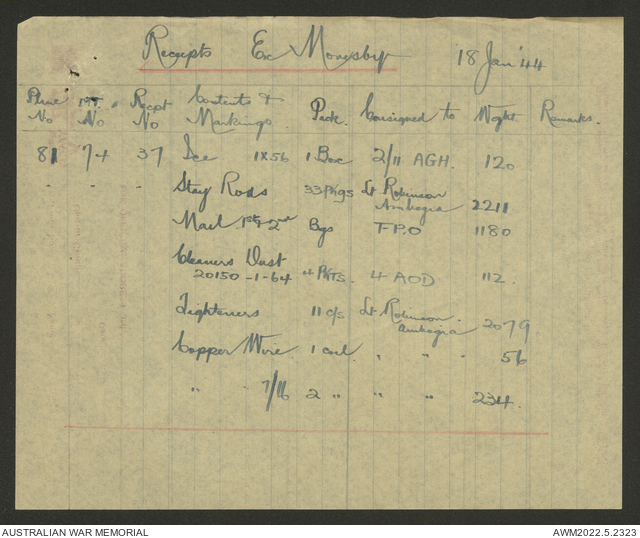 Receipts Ex Moresby 18 Jan '44
Plane No No Recpt No Contents & Markings Pack. Consigned to Wght Remarks.
81 74 37 Ice 1x56 1 Box 2/11 AGH. 120
" " " Stay Rods 33 Pkgs Lt Robinson 2211
Mail 1st & 2nd Bgs F.P.O 1180
Cleaners Dust
20150-1-64 4 PKTS. 4 AOD 112.
Tighteners 11 c/s Lt Robinson 2079
Copper Wire 1 coil " " " 56
" " 7/16 2 " " " 234.
AUSTRALIAN WAR MEMORIAL AWM2022.5.2323